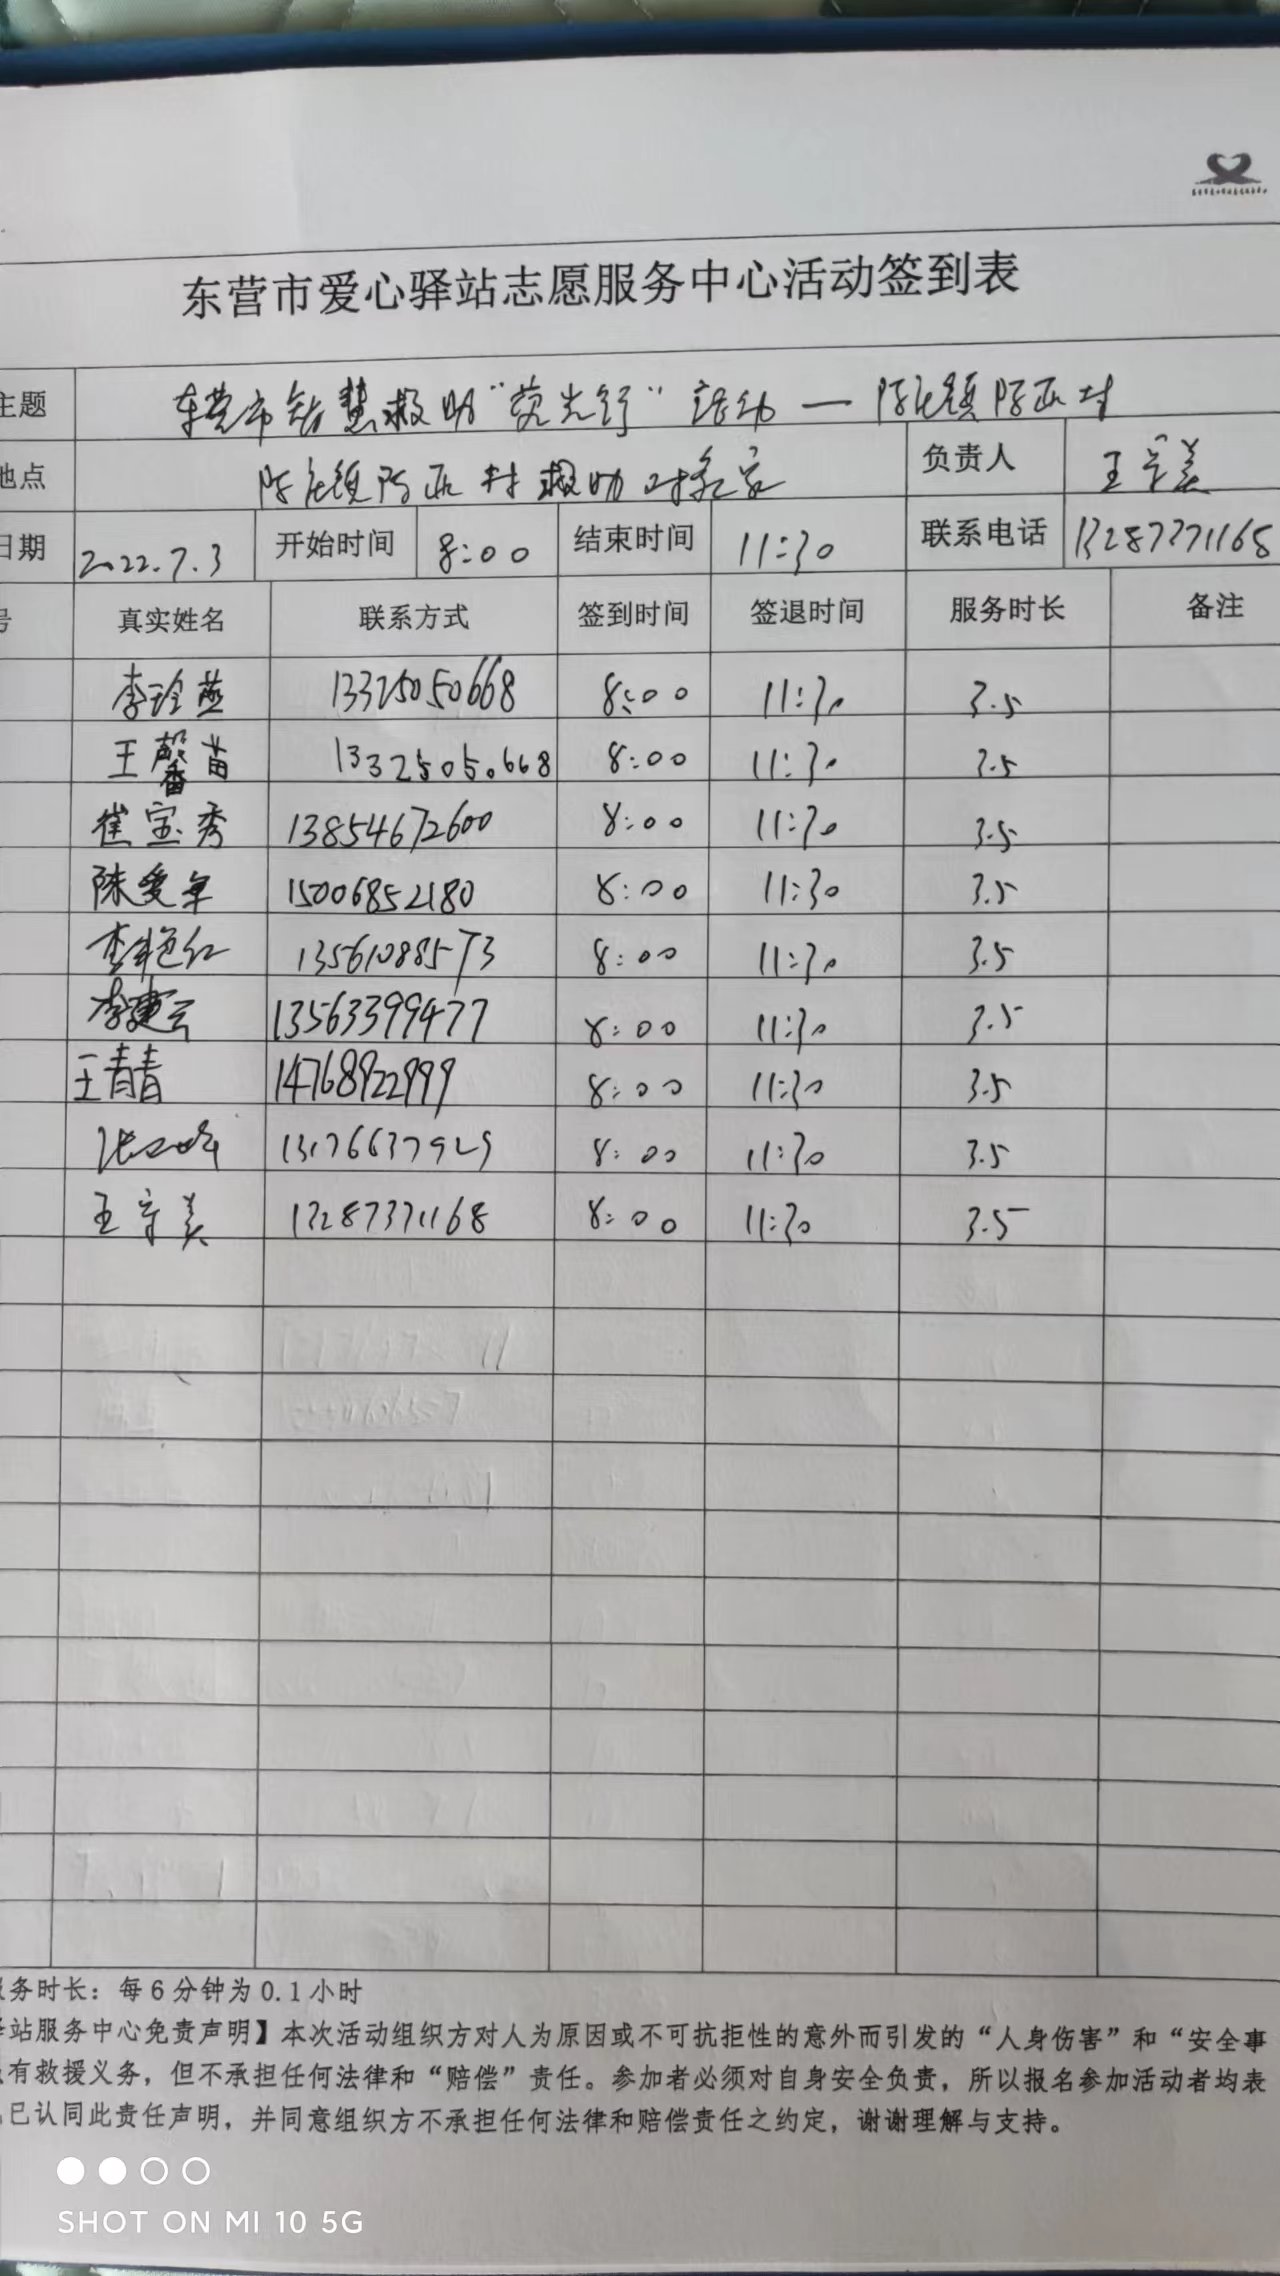 东营市爱心驿站志愿服务中心活动签到表
主题 东营市智慧救助“荧光行”活动—陈庄镇陈西村
地点 陈庄镇陈西村救助对象家 负责人 王守美
日期 2022.7.3 开始时间 8:00 结束时间 11:30 联系电话 13287371168
号 真实姓名 联系方式 签到时间 签退时间 服务时长 备注
李玲燕 13325050668 8:00 11:30 3.5
王馨苗 13325050668 8:00 11:30 3.5
崔宝秀 13854672600 8:00 11:30 3.5
陈爱军 15006852180 8:00 11:30 3.5
李艳红 13561088573 8:00 11:30 3.5
李建云 13563399477 8:00 11:30 3.5
王青青 14768922999 8:00 11:30 3.5
13176637929 8:00 11:30 3.5
王守美 13287371168 8:00 11:30 3.5
服务时长：每6分钟为0.1小时
驿站服务中心免责声明】本次活动组织方对人为原因或不可抗拒性的意外而引发的“人身伤害”和“安全事
有救援义务，但不承担任何法律和“赔偿”责任。参加者必须对自身安全负责，所以报名参加活动者均表
已认同此责任声明，并同意组织方不承担任何法律和赔偿责任之约定，谢谢理解与支持。
SHOT ON MI 10 5G